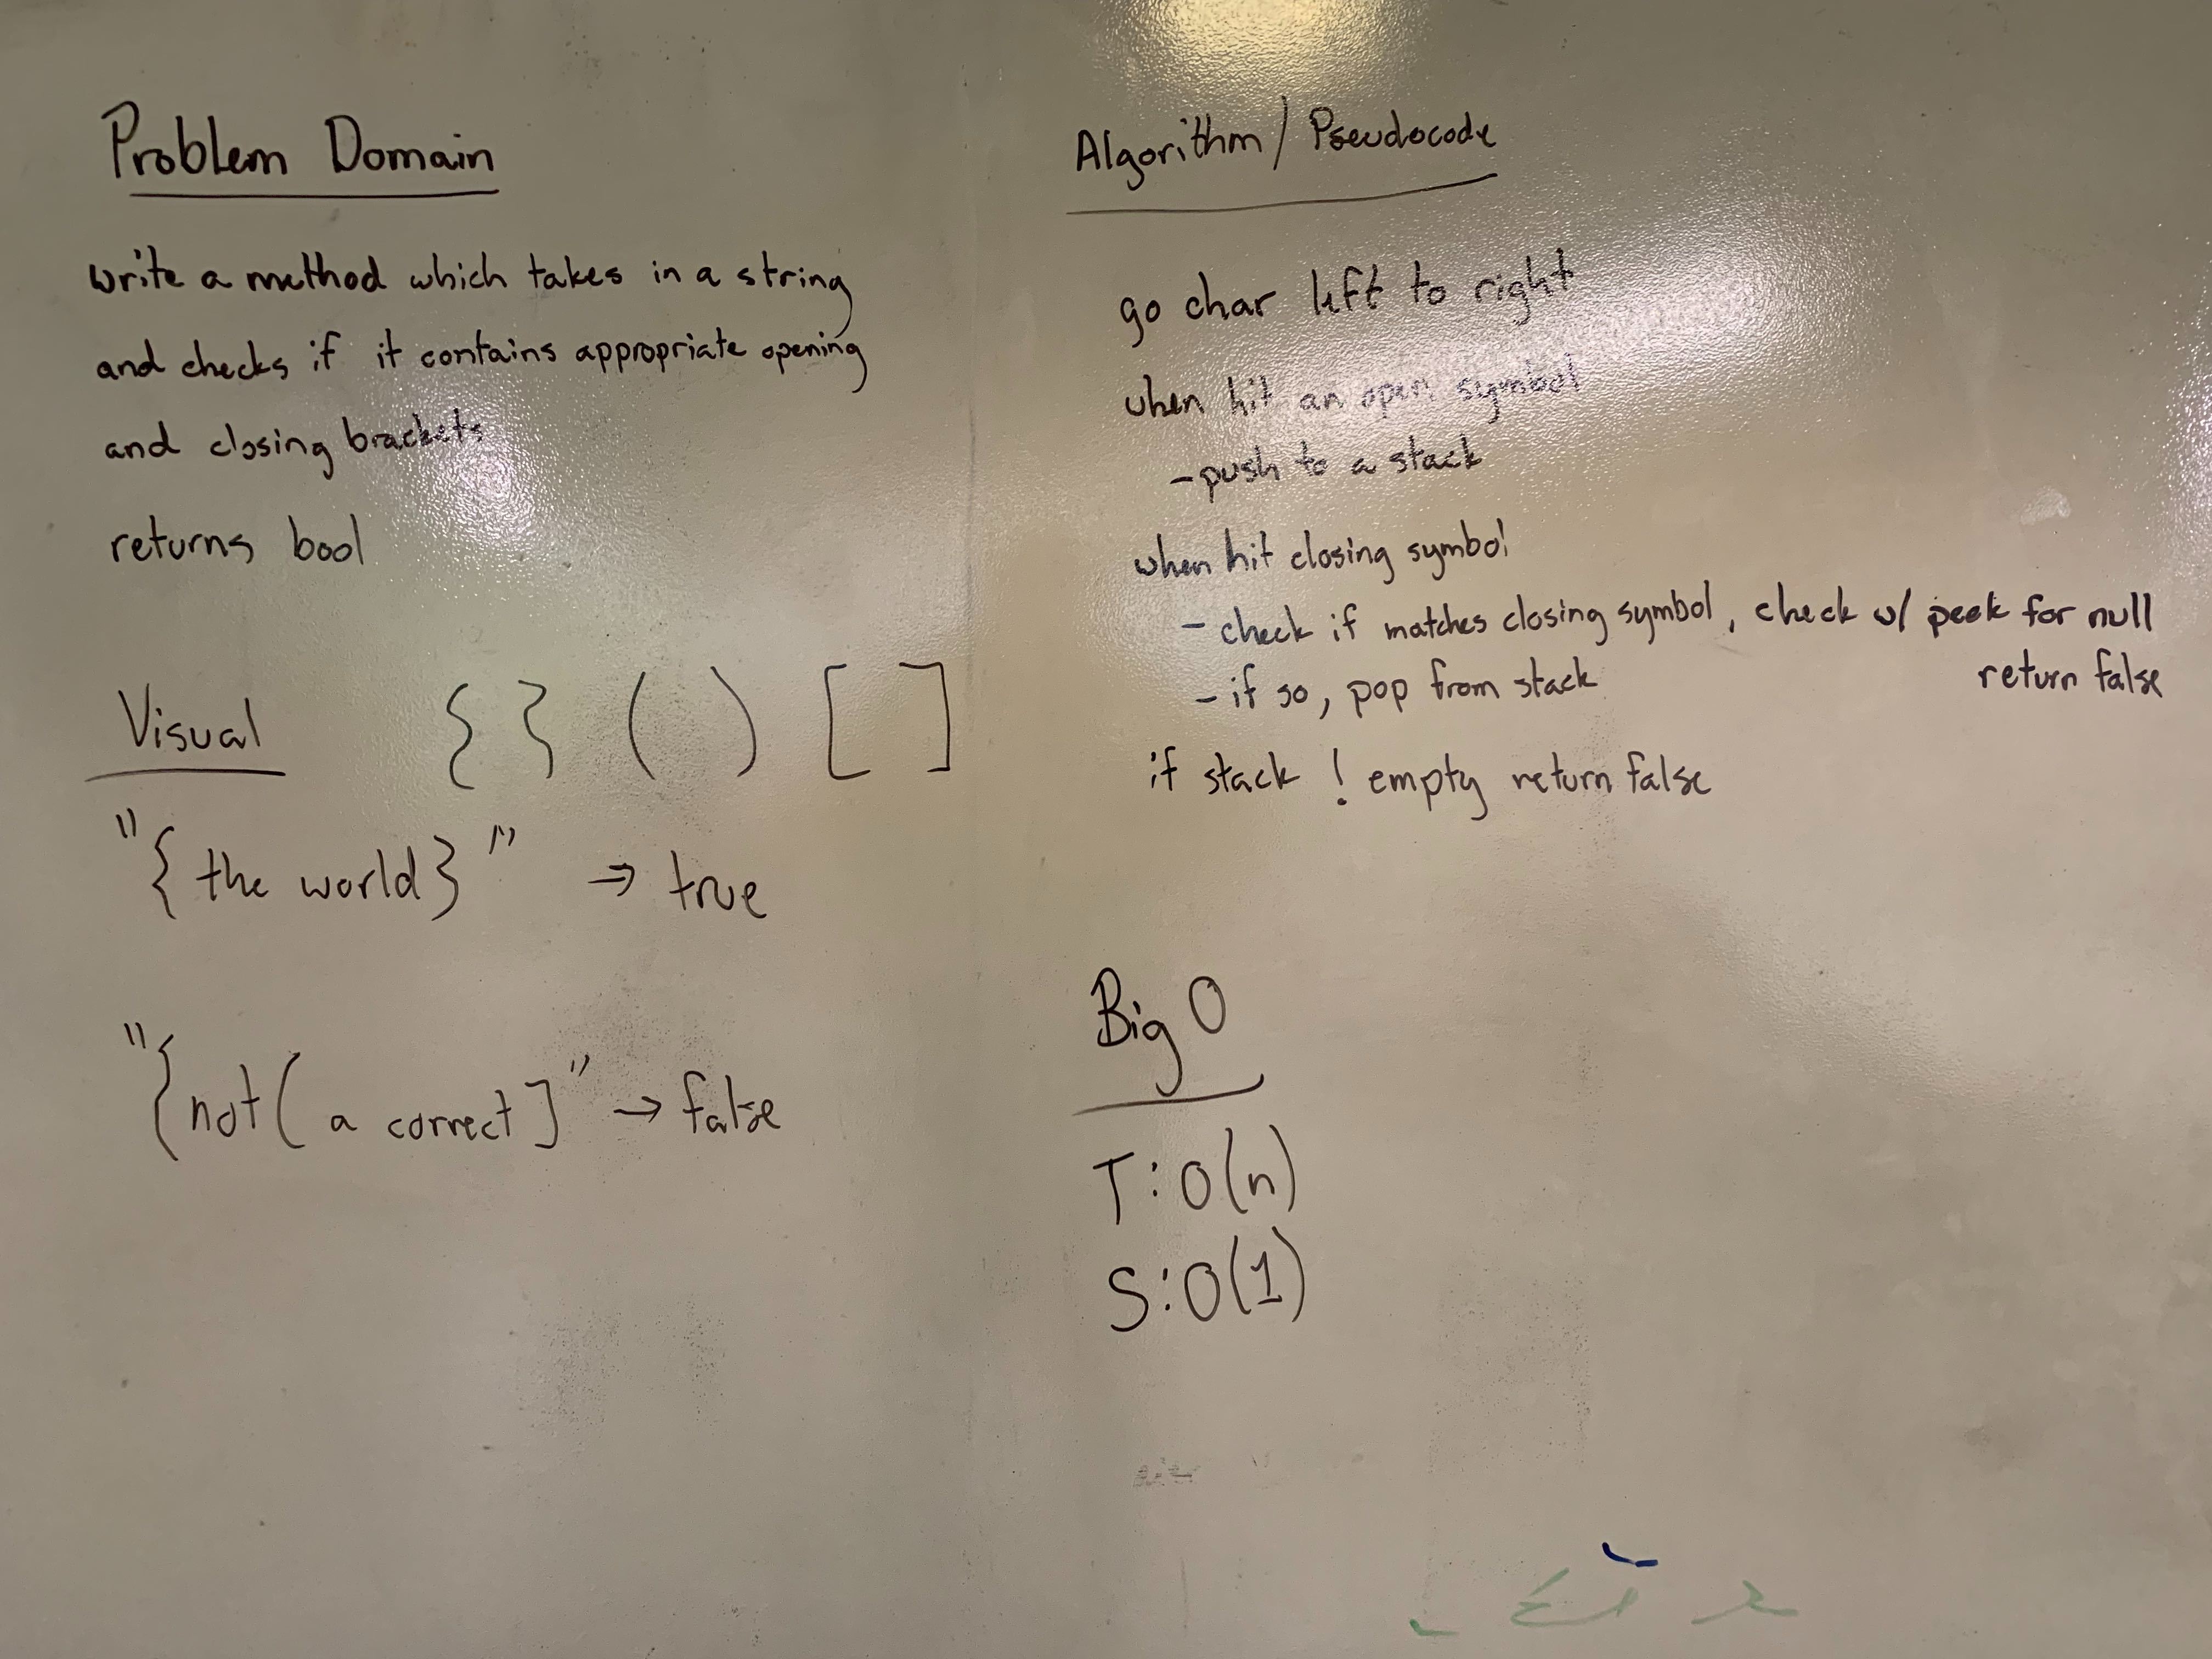 Problem Domain
write a method which takes in a string
and checks if it contains appropriate opening
and closing brackets
returns bool
Visual { } ( ) [ ]
"{ the world }" → true
"{ not ( a correct ]" → false
Algorithm / Pseudocode
go char left to right
when hit an open symbol
- push to a stack
when hit closing symbol
- check if matches closing symbol, check w/ peek for null
return false
- if so, pop from stack
if stack ! empty return false
Big O
T: O(n)
S: O(1)